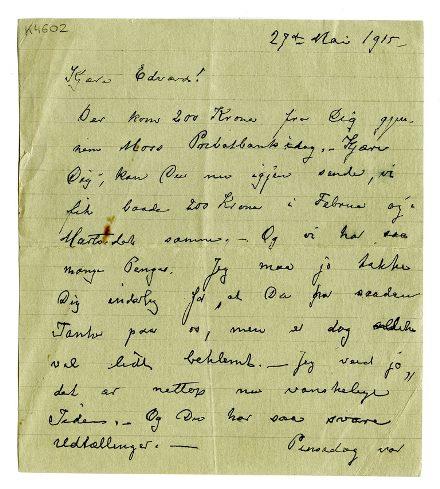 K4602
27de Mai 1915_
Kjære Edvard!
Der kom 200 Krone fra Dig gjen-
nem Moss Privatbank idag. _ Kjære
Dig, kan Du nu igjen sende, vi
fik baade 200 Krone i Februa og i
Marts det samme. _ Og vi har saa
mange Penger. Jeg maa jo takke
Dig inderlig for, at Du har saadan
Tanke paa os, men er dog
vel lidt beklemt. _ Jeg ved jo,
det er nettop nu vanskelige
Tider. _ Og Du har saa svære
Udtællinger. _ Pinsedag var